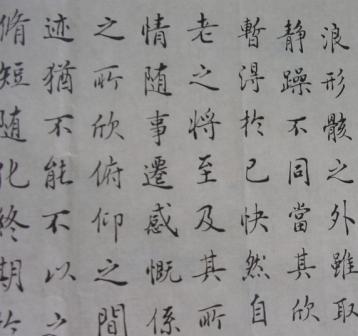 浪形骸之外雖取
静躁不同當其欣
暫得於己快然自
老之將至及其所
情随事遷感慨係
之所欣俯仰之間
迹猶不能不以之
脩短随化終期於